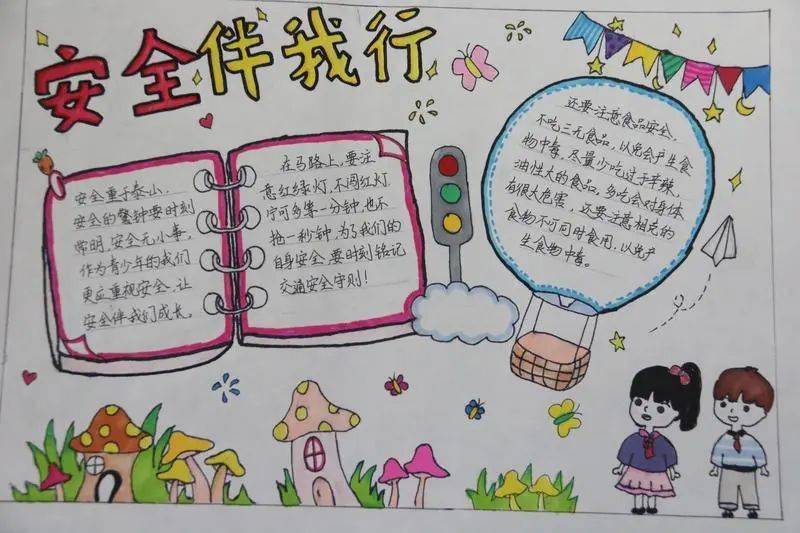 安全伴我行
安全重于泰山，
安全的警钟要时刻
常明，安全无小事，
作为青少年的我们
更应重视安全，让
安全伴我们成长。
在马路上，要注
意红绿灯，不闯红灯，
宁可多等一分钟，也不
抢一秒钟，为了我们的
自身安全，要时刻铭记
交通安全守则！
还要注意食品安全，
不吃三无食品，以免会产生食
物中毒，尽量少吃过于辛辣、
油性大的食品，多吃会对身体
有很大危害，还要注意相克的
食物不可同时食用，以免产
生食物中毒。